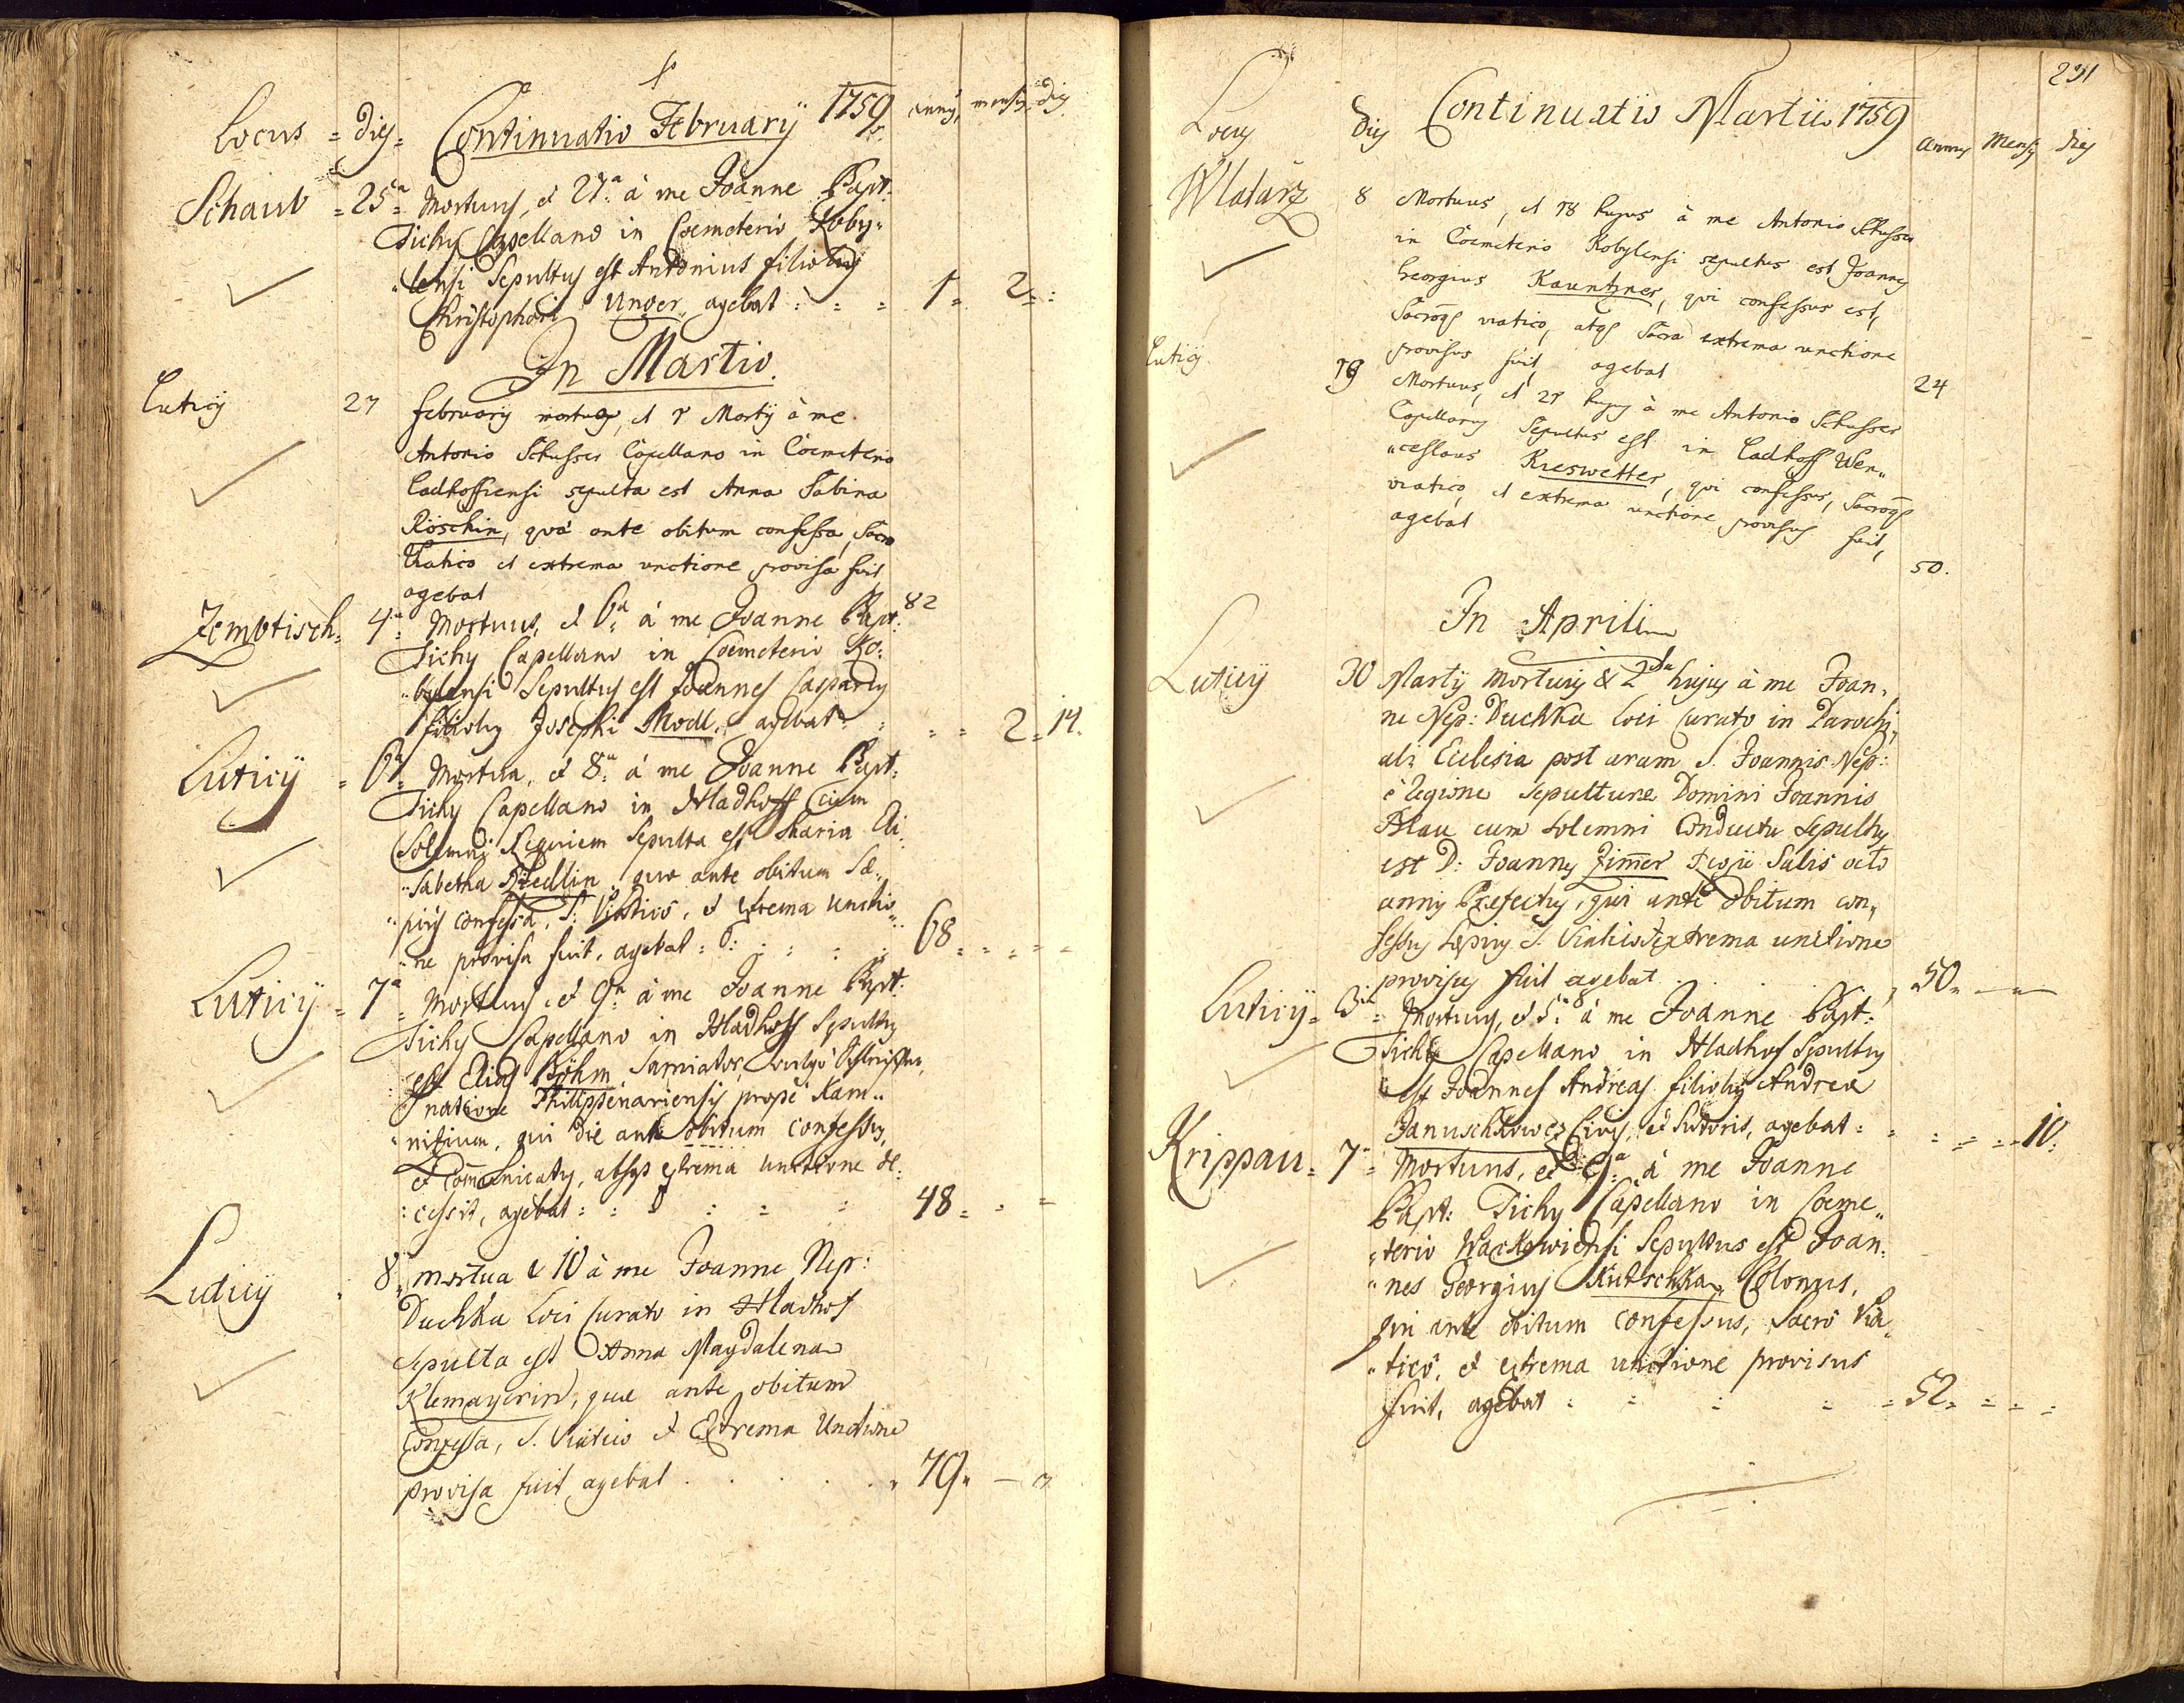 Locus = dieg = Continuatio February 1759 annus, mensis, dies
Schaub = 25ª = Mortuus, et 27ª à me Joanne Bapt:
Tichy Capellano in Coemeterio Koby„
„lensi Sepultus est Antonius filiolus
Christophori Unger, agebat : = = 1 = 2 = :
In Martio.
Luticij 27 February mortua, et 1 Martij à me
Antonio Schusser Capellano in Coemeterio
Ladhoffiensi sepulta est Anna Sabina
Röschin, quâ ante obitum confessa, Sacro
Viatico et extrema unctione provisa fuit
agebat 82
Zembtisch = 4ª = Mortuus, et 6ª à me Joanne Bapt:
Tichy Capellano in Coemeterio Ko:
„bylensi Sepultus est Joannes Casparus
filiolus Josephi Modl, agebat : = = 2 = 14.
Luticij = 6ª = Mortua, et 8ª à me Joanne Bapt:
Tichy Capellano in Hladhoff Cum
Solemni Requiem Sepulta est Maria Eli„
„sabetha, quæ ante obitum Sæ„
„pius confessa, S: Viatico, et extrema unctio„
„ne provisa fuit, agebat : 68 = = = =
Luticij = 7ª = Mortuus, et 9ª à me Joanne Bapt:
Tichy Capellano in Hladhoff Sepultus
est Elias Böhm, vulgò
natione Philippenariensis propè Kam„
„nitium, qui die ante obitum confessus,
et Com̄unicatus, absqs extrema unctione de:
:cessit, agebat : : = : = = 48 = = =
Luticij 8 mortua & 10 à me Joanne Nep:
Duchka loci Curato in Hladhof
sepulta est Anna Magdalena
Klemayerin, quæ ante obitum
Confessa, S. Viatico et Extrema Unctione
provisa fuit agebat . . . . „ 79 „ —
231
Locus dies Continuatio Martii 1759 annus Mensis dies
Wlatarz 8 Mortuus, et 18 hujus à me Antonio Schusser
in Coemeterio Kobylensi sepultus est Joannes
Georgius Kauntzner, qui confessus est,
Sacroqs viatico, atqs Sacra extrema unctione
provisus fuit, agebat 24
Luticij 19 Mortuus, et 21 hujus à me Antonio Schusser
Capellano Sepultus est in Ladhoff Wen„
„ceslaus Kieswetter, qui confessus, Sacroqs
viatico, et extrema unctione provisus fuit,
agebat 50.
In Aprili
Luticij 30 Martij Mortuus & 2da hujus à me Joan„
ne Nep: Duchka loci Curato in Parochi„
ali Ecclesia post aram S. Joannis Nep:
è regione sepulturæ Domini Joannis
Blau cum solemni Conductu sepultus
est D: Joannes Zim̄er Regii Salis octo
annis Præfectus, qui ante obitum con„
fessus sæpius S. Viatico et extrema unctione
provisus fuit agebat . . . , 50 = — —
Luticij = 3ª = Mortuus, et 5ª à me Joanne Bapt:
Tichy Capellano in Hladhof Sepultus
est Joannes Andreas filiolus Andreæ
Januschkowez Civis, et Sutoris, agebat : = = = = 10:
Krippau = 7ª = Mortuus, et 9ª à me Joanne
Bapt: Tichy Capellano in Coeme„
„terio Warkowiensi Sepultus est Joan„
„nes Georgius Kutschka, Colonus,
qui ante obitum confessus, Sacrô Via„
„ticô, et extrema unctione provisus
fuit, agebat : = = = = 52 = = = =